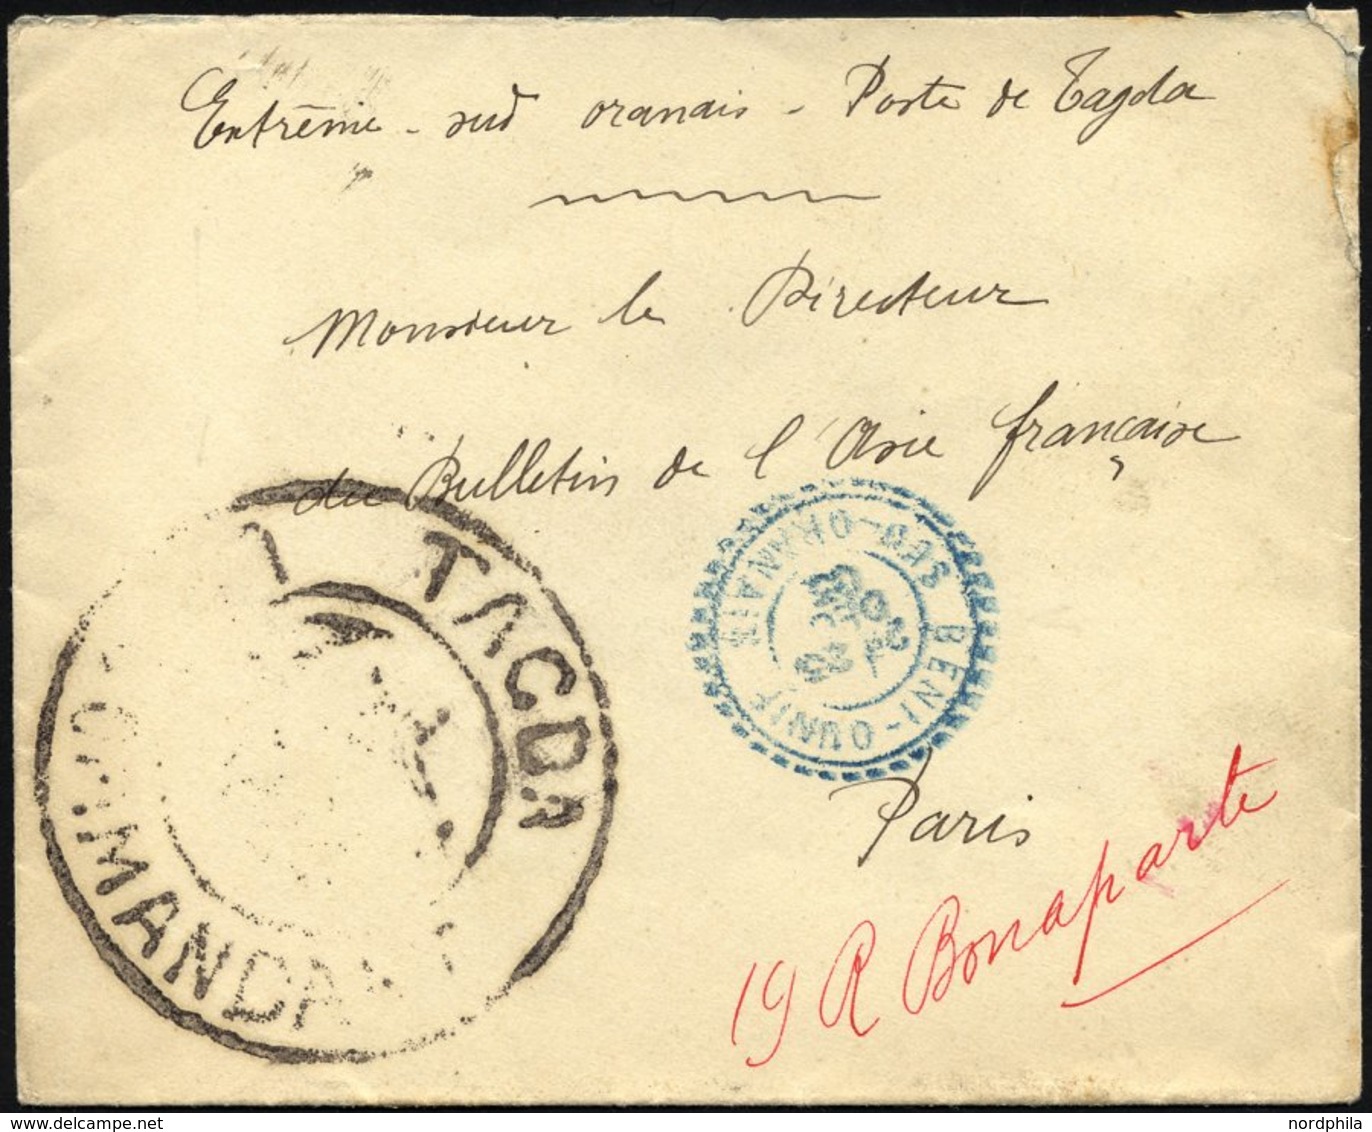 Extrême-sud oranais - Poste de Tagda
Monsieur le Directeur
du Bulletin de l'Asie française
TAGDA
BENI-OUNIF
SUD-ORANAIS
Paris
19 R Bonaparte
nordphila